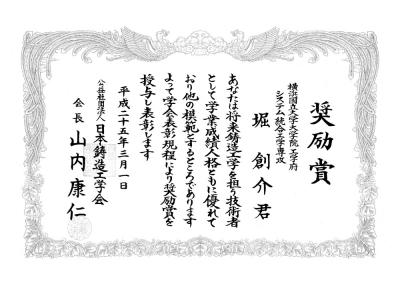 奨励賞
横浜国立大学大学院工学府
システム統合工学専攻
堀 創介君
あなたは将来鋳造工学を担う技術者
として学業成績人格ともに優れて
おり他の模範とするところであります
よって学会表彰規程により奨励賞を
授与し表彰します
平成二十五年三月一日
公益社団法人日本鋳造工学会
会長 山内康仁